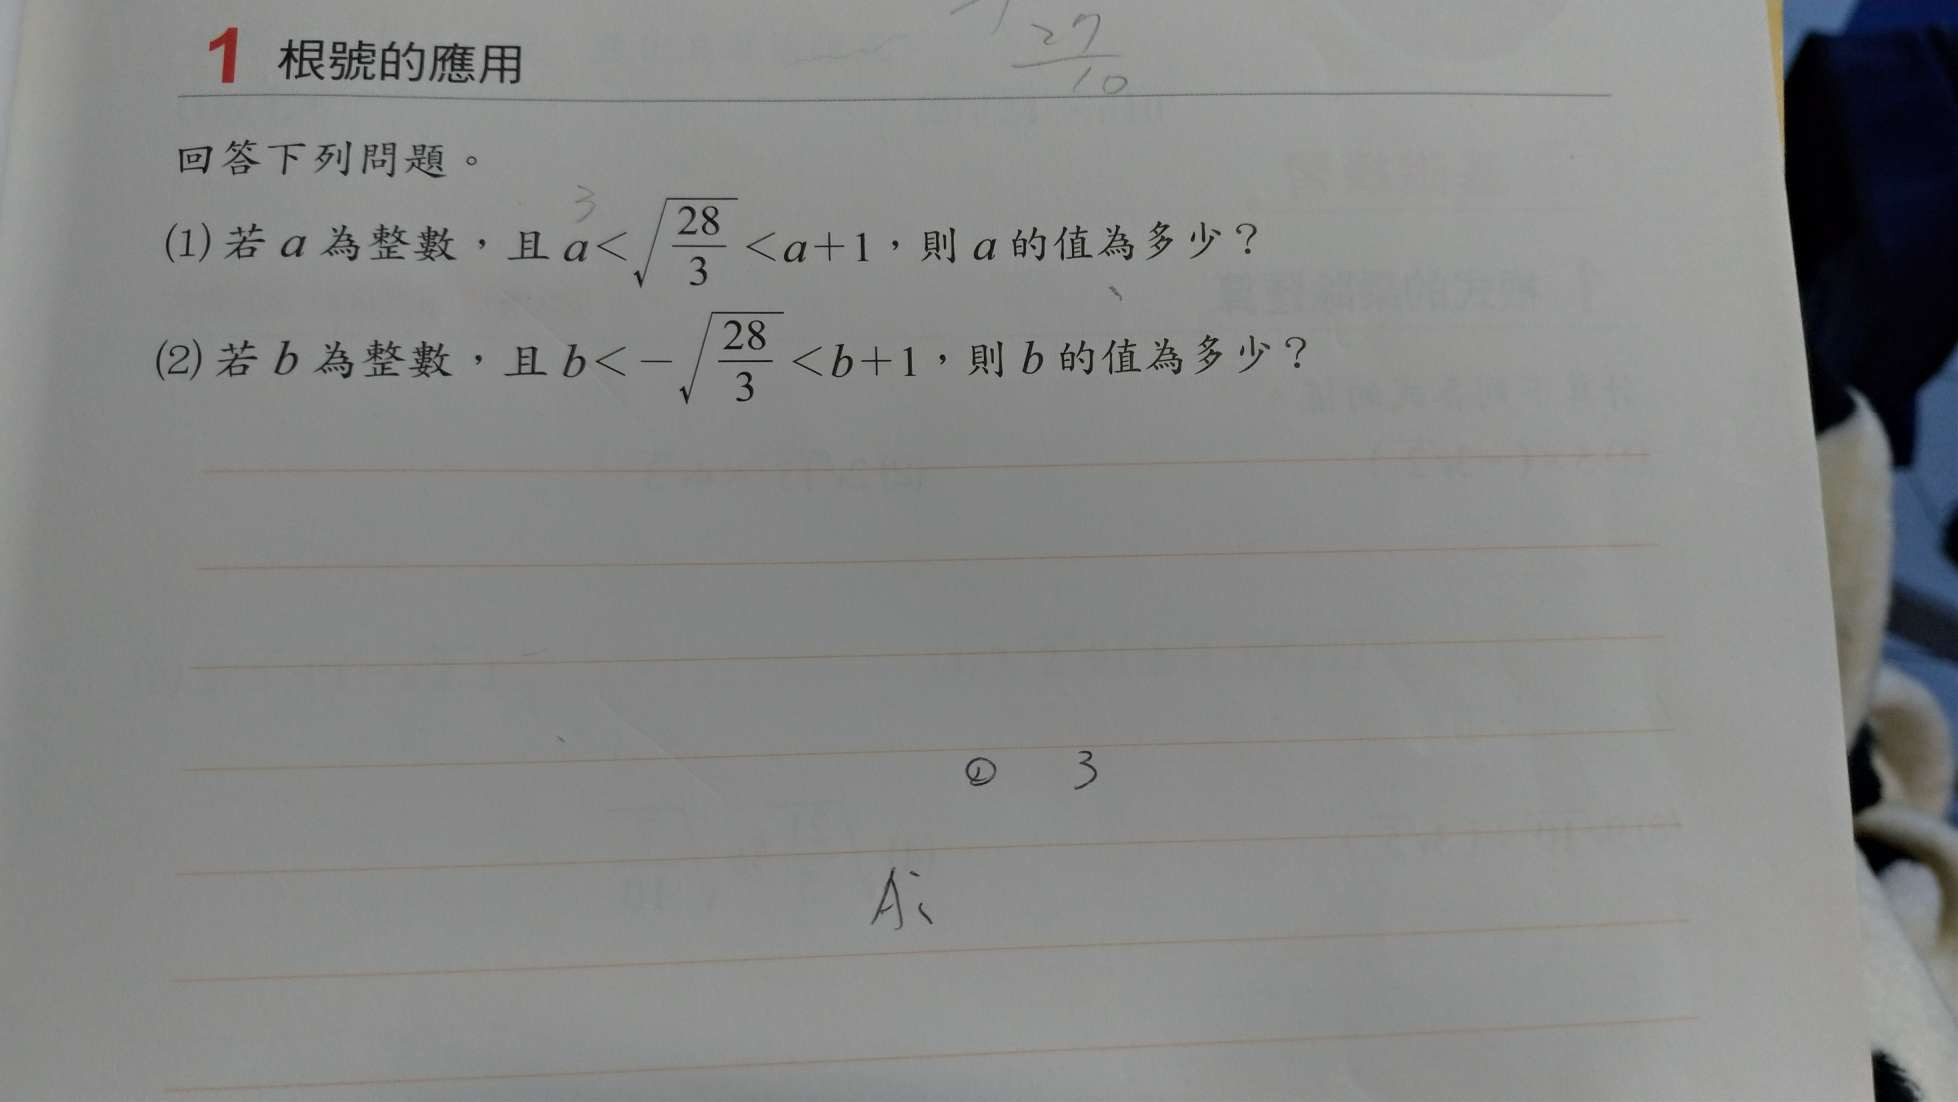 27
10
1 根號的應用
回答下列問題。
3
(1) 若 a 為整數，且 a<√28/3 <a+1，則 a 的值為多少？
(2) 若 b 為整數，且 b<−√28/3 <b+1，則 b 的值為多少？
① 3
A: